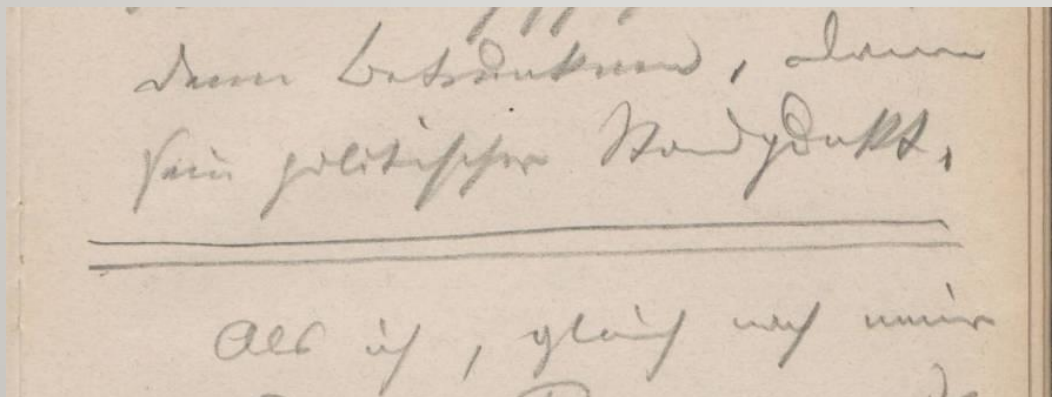 dem Betrunkenen, denn
sein politischer Standpunkt.
Als ich, gleich nach meiner